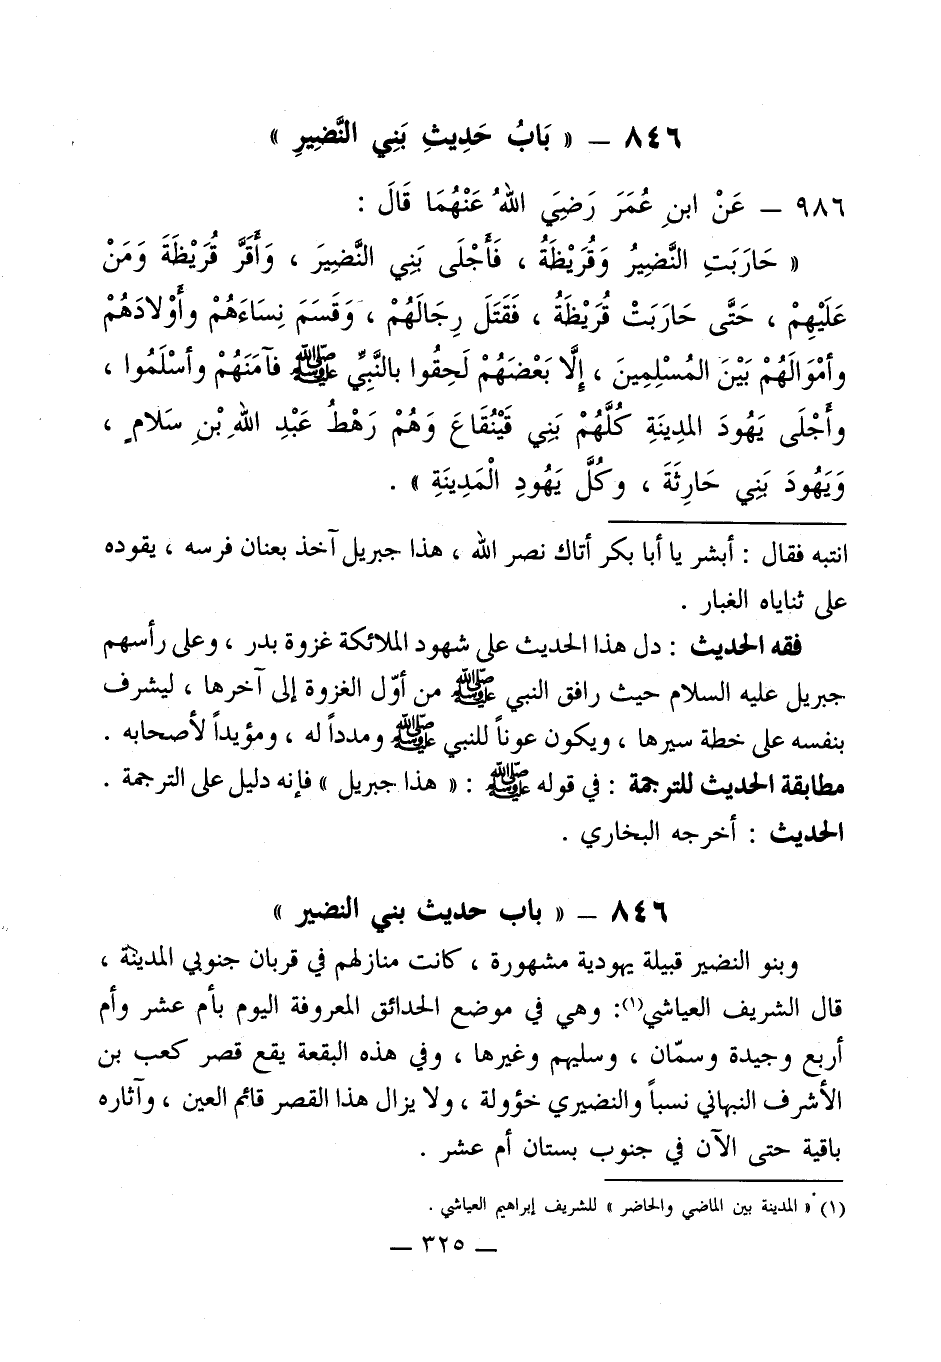 ٨٤٦ – « بَابُ حَدِيثِ بَنِي النَّضِيرِ »
٩٨٦ – عَنْ ابنِ عُمَرَ رَضِيَ اللهُ عَنْهُمَا قَالَ :
« حَارَبَتِ النَّضِيرُ وَقُرَيْظَةُ ، فَأَجْلَى بَنِي النَّضِيرَ ، وَأَقَرَّ قُرَيْظَةَ وَمَنْ
عَلَيْهِمْ ، حَتَّى حَارَبَتْ قُرَيْظَةُ ، فَقَتَلَ رِجَالَهُمْ ، وَقَسَمَ نِسَاءَهُمْ وأَوْلادَهُمْ
وأمْوَالَهُمْ بَيْنَ المُسْلِمِينَ ، إِلَّا بَعْضَهُمْ لَحِقُوا بالنَّبِيِّ ﷺ فآمَنَهُمْ وأسْلَمُوا ،
وأَجْلَى يَهُودَ المدِينَةِ كُلَّهُمْ بَنِي قَيْنُقَاعَ وَهُمْ رَهْطُ عَبْدِ اللهِ بْنِ سَلامٍ ،
وَيَهُودَ بَنِي حَارِثَةَ ، وكُلَّ يَهُودِ الْمَدِينَةِ » .
انتبه فقال : أبشر يا أبا بكر أتاك نصر الله ، هذا جبريل آخذ بعنان فرسه ، يقوده
على ثناياه الغبار .
فقه الحديث : دل هذا الحديث على شهود الملائكة غزوة بدر ، وعلى رأسهم
جبريل عليه السلام حيث رافق النبي ﷺ من أوّل الغزوة إلى آخرها ، ليشرف
بنفسه على خطة سيرها ، ويكون عوناً للنبي ﷺ ومدداً له ، ومؤيداً لأصحابه .
مطابقة الحديث للترجمة : في قوله ﷺ : « هذا جبريل » فإنه دليل على الترجمة .
الحديث : أخرجه البخاري .
٨٤٦ – « باب حديث بني النضير »
وبنو النضير قبيلة يهودية مشهورة ، كانت منازلهم في قربان جنوبي المدينة ،
قال الشريف العياشي(١): وهي في موضع الحدائق المعروفة اليوم بأم عشر وأم
أربع وجيدة وسمّان ، وسليهم وغيرها ، وفي هذه البقعة يقع قصر كعب بن
الأشرف النبهاني نسباً والنضيري خؤولة ، ولا يزال هذا القصر قائم العين ، وآثاره
باقية حتى الآن في جنوب بستان أم عشر .
(١) « المدينة بين الماضي والحاضر » للشريف إبراهيم العياشي .
– ٣٢٥ –